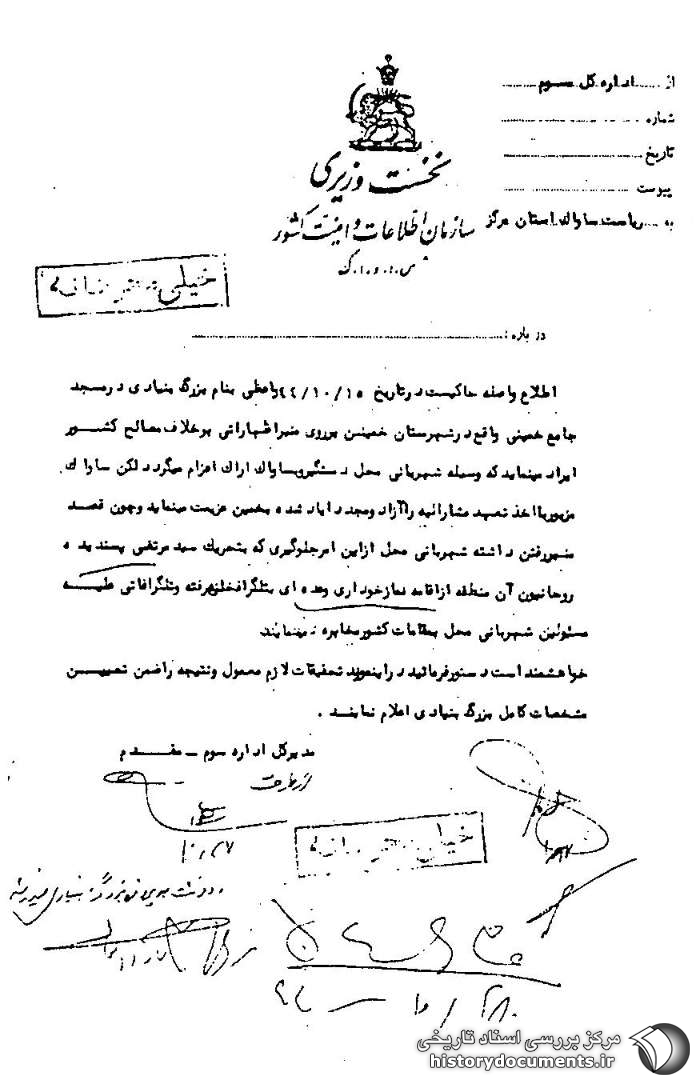 از اداره کل سوم
شماره
تاریخ
پیوست
به ریاست ساواک استان مرکز
نخست وزیری
سازمان اطلاعات و امنیت کشور
س.ا.و.ا.ک
خیلی محرمانه
درباره :
اطلاع واصله حاکیست در تاریخ ۴۴/۱۰/۱۵ واعظی بنام بزرگ بنیادی در مسجد
جامع خمینی واقع در شهرستان خمین بر روی منبر اظهاراتی بر خلاف مصالح کشور
ایراد مینماید که وسیله شهربانی محل دستگیر و بساواک اراک اعزام میگردد لکن ساواک
مزبور با اخذ تعهد مشارالیه را آزاد و مجددا یاد شده بخمین عزیمت مینماید و چون قصد
منبر رفتن داشته شهربانی محل از این امر جلوگیری که بتحریک سید مرتضی پسندیده
روحانیون آن منطقه از اقامه نماز خودداری و عده ای بتلگرافخانه رفته و تلگرافاتی علیه
مسئولین شهربانی محل بمقامات کشور مخابره مینمایند.
خواهشمند است دستور فرمائید در اینمورد تحقیقات لازم معمول و نتیجه را ضمن تعیین
مشخصات کامل بزرگ بنیادی اعلام نمایند .
مدیر کل اداره سوم - مقدم
از طرف
۱۰/۲۷
خیلی محرمانه
بزرگ بنیادی
مرکز بررسی اسناد تاریخی
historydocuments.ir